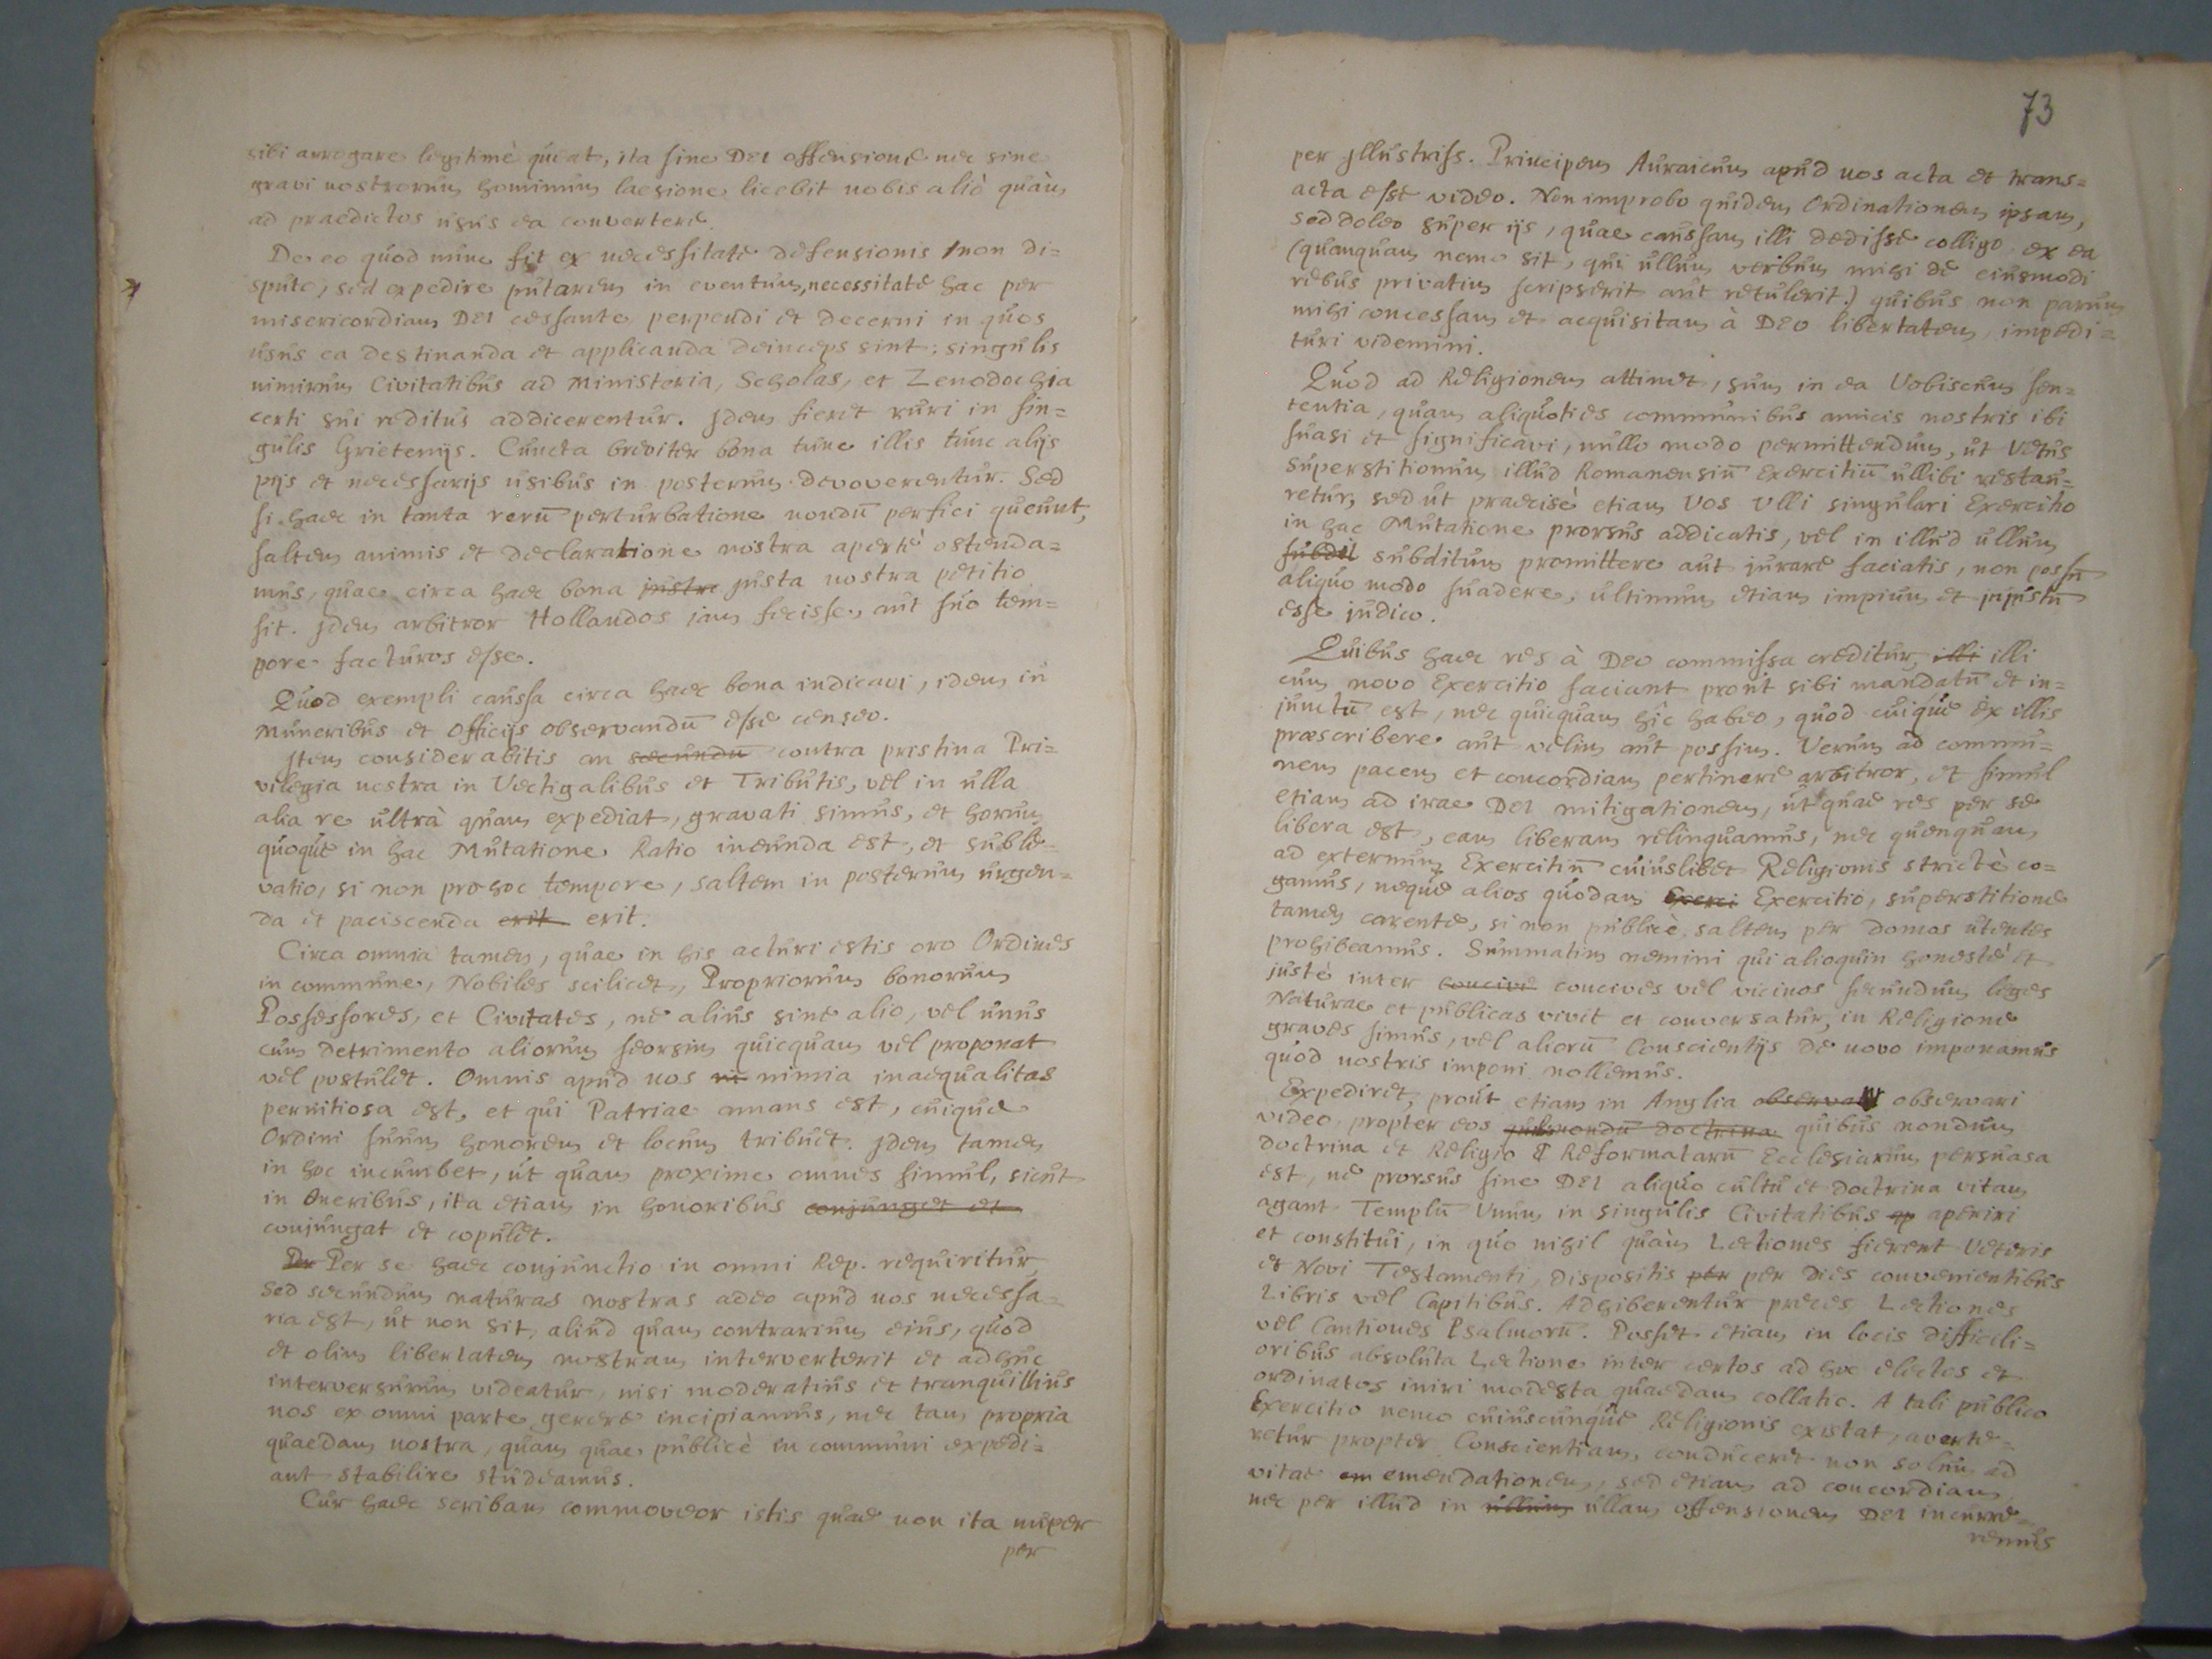 sibi arrogare legitimè queat, ita sine DEI offensione nec sine
gravi nostrorum hominum laesione licebit nobis aliò quàm
ad praedictos usus ea convertere.
De eo quod nunc fit ex necessitate defensionis non di=
spute, sed expedire putarem in eventum, necessitate hac per
misericordiam DEI cessante perpendi et decerni in quos
usus ea destinanda et applicanda deinceps sint; singulis
nimirum Civitatibus ad Ministeria, Scholas, et Zenodochia
certi sui reditus addicerentur. Idem fieret ruri in sin=
gulis Grietenijs. Cuncta breviter bona tunc illis tunc alijs
pijs et necessarijs usibus in posterum devoverentur. Sed
si haec in tanta rerū perturbatione nondū perfici queunt,
saltem animis et declaratione nostra apertè ostenda=
mus, quae circa haec bona justa nostra petitio
sit. Idem arbitror Hollandos jam fecisse, aut suo tem=
pore facturos esse.
Quod exempli caussa circa haec bona indicavi, idem in
Muneribus et Officijs observandū esse censeo.
Item considerabitis an secundū contra pristina Pri=
vilegia nostra in Vectigalibus et Tributis, vel in ulla
alia re ultrà quam expediat, gravati simus, et horum
quoque in hac Mutatione Ratio ineunda est, et suble=
vatio, si non pro hoc tempore, saltem in posterum urgen=
da et paciscenda erit erit.
Circa omnia tamen, quae in his acturi estis oro Ordines
in commune, Nobiles scilicet, Propriorum bonorum
Possessores, et Civitates, ne alius sine alio, vel unus
cum detrimento aliorum seorsim quicquam vel proponat
vel postulet. Omnis apud nos ni nimia inaequalitas
pernitiosa est, et qui Patriae amans est, cuique
Ordini suum honorem et locum tribuet. Idem tamen
in hoc incumbet, ut quam proxime omnes simul, sicut
in Oneribus, ita etiam in honoribus conjunget et
conjungat et copulet.
Per Per se haec conjunctio in omni Rep. requiritur
sed secundum naturas nostras adeo apud nos necessa=
ria est, ut non sit, aliud quam contrarium eius, quod
et olim libertatem nostram interverterit et adhuc
interversurum videatur, nisi moderatius et tranquillius
nos ex omni parte gerere incipiamus, nec tam propria
quaedam nostra, quam quae publicè in communi expedi=
ant stabilire studeamus.
Cur haec scribam commoveor istis quae non ita nuper
per
73
per Illustriss. Principem Auraicum apud vos acta et trans=
acta esse video. Non improbo quidem Ordinationem ipsam,
sed doleo super ijs, quae caussam illi dedisse colligo ex ea
(quanquam nemo sit, qui ullum verbum mihi de eiusmodi
rebus privatim scripserit aut retulerit.) quibus non parum
mihi concessam et acquisitam à DEO libertatem, impedi=
turi videmini.
Quod ad Religionem attinet, sum in ea Vobiscum sen=
tentia, quam aliquoties communibus amicis nostris ibi
suasi et significavi, nullo modo permittendum, ut Vetus
superstitionum illud Romanensiū Exercitiū ullibi restau=
retur, sed ut praecisè etiam Vos Ulli singulari Exercitio
in hac Mutatione prorsus addicatis, vel in illud ullum
subdit subditum promittere aut jurare faciatis, non possū
aliquo modo suadere, ultimum etiam impium et injustū
esse judico.
Quibus haec res à DEO commissa creditur, illi illi
cum novo Exercitio faciant prout sibi mandatū et in=
junctū est, nec quicquam hîc habeo, quod cuique ex illis
praescribere aut velim aut possim. Verum ad commu=
nem pacem et concordiam pertinere arbitror, et simul
etiam ad irae DEI mitigationem, ut quae res per se
libera est, eam liberam relinquamus, nec quenquam
ad externum Exercitiū cuiuslibet Religionis strictè co=
gamus, neque alios quodam Exerci Exercitio, superstitione
tamen carente, si non publicè, saltem per domos utentes
prohibeamus. Summatim nemini qui alioquin honestè et
justè inter concive concives vel vicinos secundum leges
Naturae et publicas vivit et conversatur, in Religione
graves simus, vel aliorū Conscientijs de novo imponamus
quod nostris imponi nollemus.
Expediret, prout etiam in Anglia observari observari
video, propter eos quibus nondū doctrina quibus nondum
doctrina et Religio Reformatarū Ecclesiarum persuasa
est, ne prorsus sine DEI aliquo cultu et doctrina vitam
agant Templū Unum in singulis Civitatibus ap aperiri
et constitui, in quo nihil quàm Lectiones fierent Veteris
et Novi Testamenti, dispositis per per dies convenientibus
Libris vel Capitibus. Adhiberentur preces Lectiones
vel Cantiones Psalmorū. Posset etiam in locis difficili=
oribus absoluta Lectione inter certos ad hoc electos et
ordinatos iniri modesta quaedam collatio. A tali publico
Exercitio nemo cuiuscunque Religionis existat, averte=
retur propter Conscientiam, conduceret non solum ad
vitae em emendationem, sed etiam ad concordiam,
nec per illud in ullum ullam offensionem DEI incurre=
remus